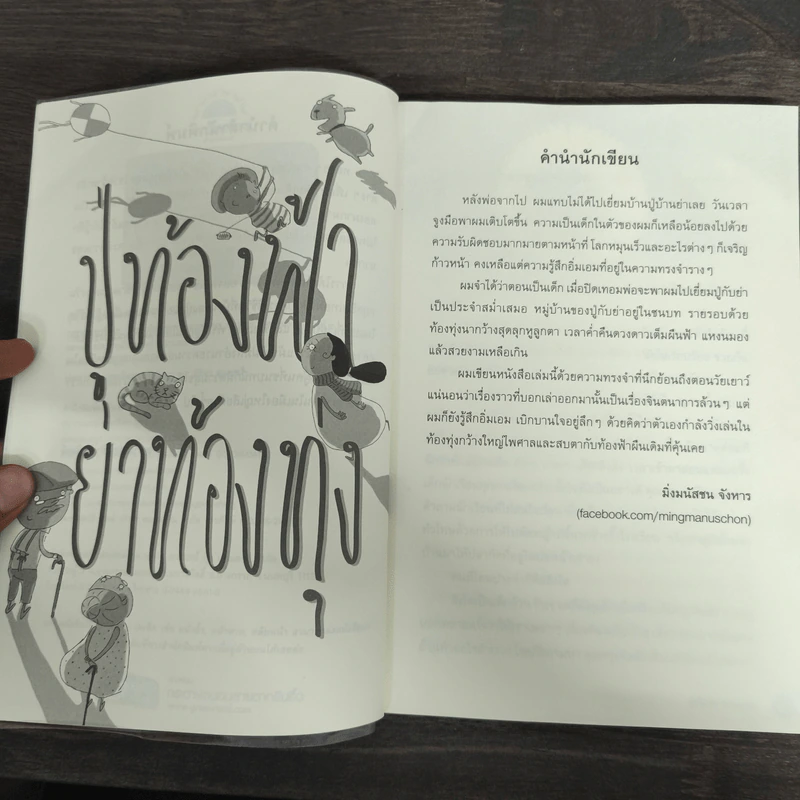 ปู่ท้องฟ้า
ย่าท้องทุ่ง
คำนำนักเขียน
หลังพ่อจากไป ผมแทบไม่ได้ไปเยี่ยมบ้านปู่บ้านย่าเลย วันเวลา
จูงมือพาผมเติบโตขึ้น ความเป็นเด็กในตัวของผมก็เหลือน้อยลงไปด้วย
ความรับผิดชอบมากมายตามหน้าที่ โลกหมุนเร็วและอะไรต่างๆ ก็เจริญ
ก้าวหน้า คงเหลือแต่ความรู้สึกอิ่มเอมที่อยู่ในความทรงจำรางๆ
ผมจำได้ว่าตอนเป็นเด็ก เมื่อปิดเทอมพ่อจะพาผมไปเยี่ยมปู่กับย่า
เป็นประจำสม่ำเสมอ หมู่บ้านของปู่กับย่าอยู่ในชนบท รายรอบด้วย
ท้องทุ่งนากว้างสุดลูกหูลูกตา เวลาค่ำคืนดวงดาวเต็มผืนฟ้า แหงนมอง
แล้วสวยงามเหลือเกิน
ผมเขียนหนังสือเล่มนี้ด้วยความทรงจำที่นึกย้อนถึงตอนวัยเยาว์
แน่นอนว่าเรื่องราวที่บอกเล่าออกมานั้นเป็นเรื่องจินตนาการล้วนๆ แต่
ผมก็ยังรู้สึกอิ่มเอม เบิกบานใจอยู่ลึกๆ ด้วยคิดว่าตัวเองกำลังวิ่งเล่นใน
ท้องทุ่งกว้างใหญ่ไพศาลและสบตากับท้องฟ้าผืนเดิมที่คุ้นเคย
มิ่งมนัสชน จังหาร
(facebook.com/mingmanuschon)